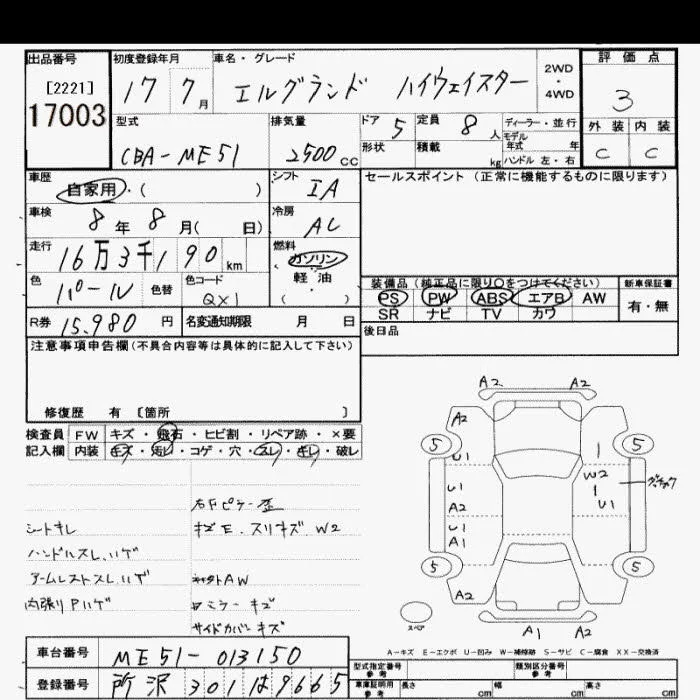 出品番号
[2221]
17003
初度登録年月
17 7月
車名・グレード
エルグランド ハイウェイスター
2WD・4WD
評価点
3
外装 内装
C C
型式
CBA-ME51
排気量
2500cc
ドア 5
形状
定員 8人
積載 kg
ディーラー・並行
モデル年式 年
ハンドル 左・右
車歴
自家用・( )
シフト
IA
車検
8年8月( 日)
冷房
AC
走行
16万3千190km
燃料
ガソリン
軽油
( )
色
パール
色替
色コード
QX1
R券 15,980円
名変通知期限 月 日
セールスポイント(正常に機能するものに限ります)
装備品(純正品に限り○をつけてください)
PS PW ABS エアB AW
SR ナビ TV カワ
新車保証書
有・無
後日品
注意事項申告欄(不具合内容等は具体的に記入して下さい)
修復歴 有 [箇所 ]
検査員
記入欄
FW キズ・飛石・ヒビ割・リペア跡・×要
内装 キズ・汚レ・コゲ・穴・スレ・キレ・破レ
右Fピラー歪
シートキレ
キズE.スリキズW2
ハンドルスレ,ハゲ
アームレストスレ,ハゲ
内張りPハゲ
ミラーキズ
サイドカバーキズ
A2 A2
A2 A2
5 5
U1
W2
U1 U1
A2
U1
A1
5 5
A2 A2
A1 A2
スペア
A-キズ E-エクボ U-凹み W-補修跡 S-サビ C-腐食 XX-交換済
車台番号
ME51-013150
登録番号
所沢301は9665
型式指定番号
参考
類別区分番号
参考
車庫証明用
参考
長さ cm 幅 cm 高さ cm